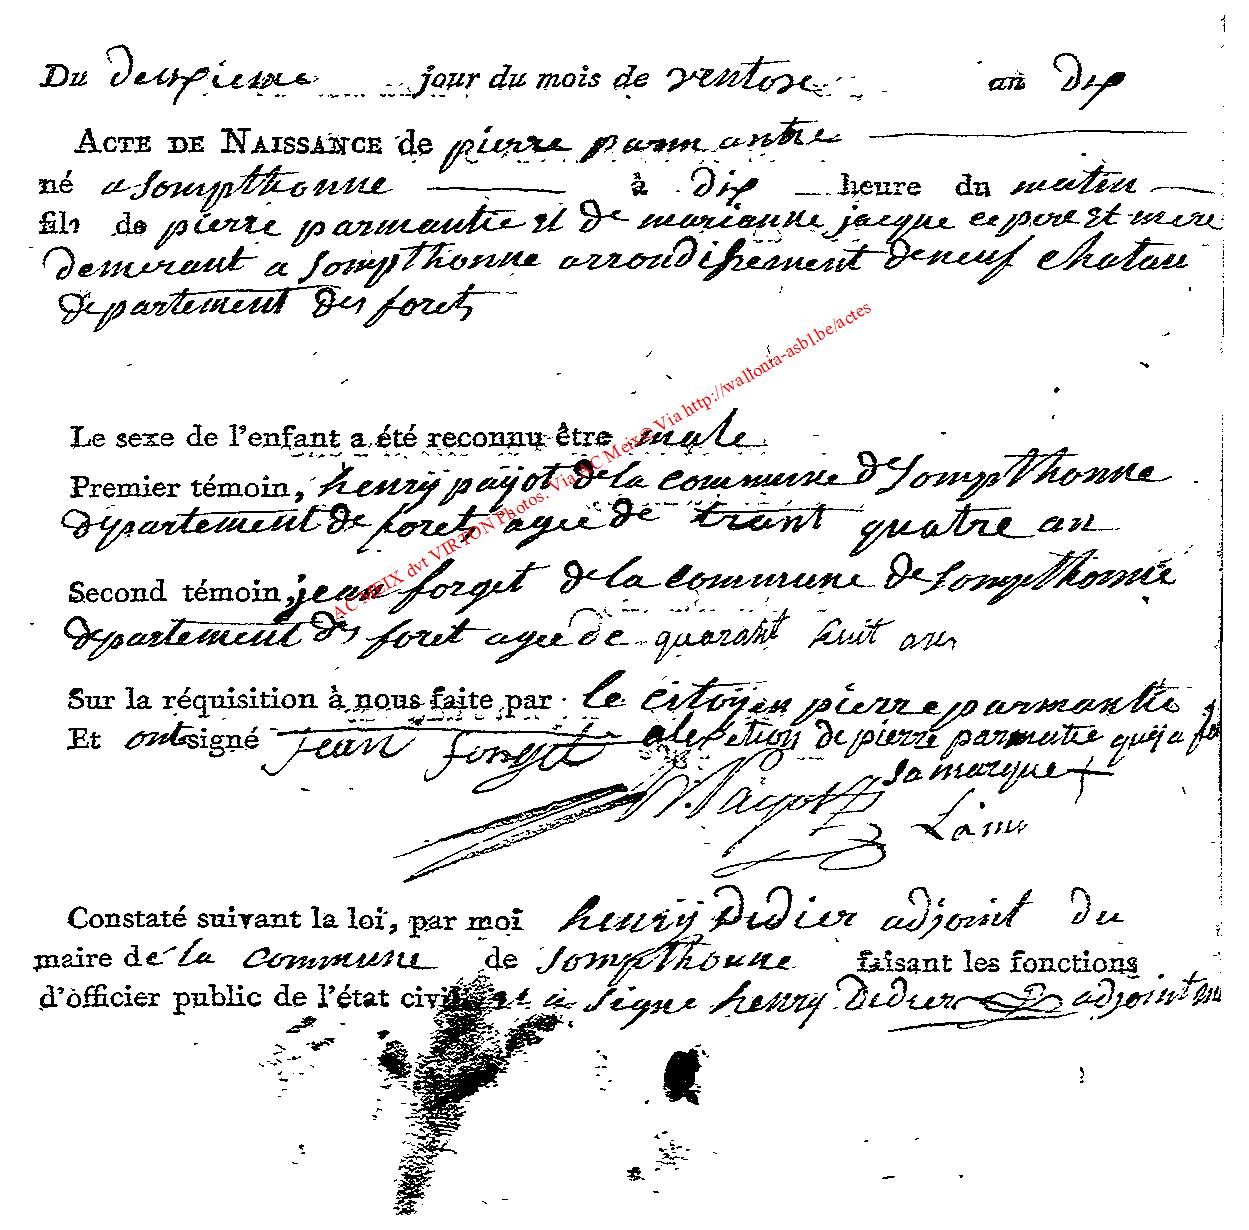 Du deuxieme jour du mois de ventose an dix
ACTE DE NAISSANCE de pierre parmantie
né a Sompthonne à dix heure du matin
fils de pierre parmantie et de marianne jacque ce pere et mere
demerant a Sompthonne arrondissement de neuf chatau
departement des forets
Le sexe de l'enfant a été reconnu être male
Premier témoin, henry payot de la commune de Sompthonne
departement de foret agee de trant quatre an
Second témoin, jean forget de la commune de Sompthonne
departement des foret agee de quarant huit ans
Sur la réquisition à nous faite par le citoyen pierre parmantie
Et ont signé jean forget alexètion de pierre parmatie quÿ a fet
sa marque +
h. Payot
Henry Didier adjoint du
Constaté suivant la loi, par moi henry Didier adjoint du
maire de la commune de Sompthonne faisant les fonctions
d'officier public de l'état civil et a signe henry Didier adjoint
AC MEIX dvt VIRTON Photos. Via AC Meix@ Via http://wallonia-asbl.be/actes